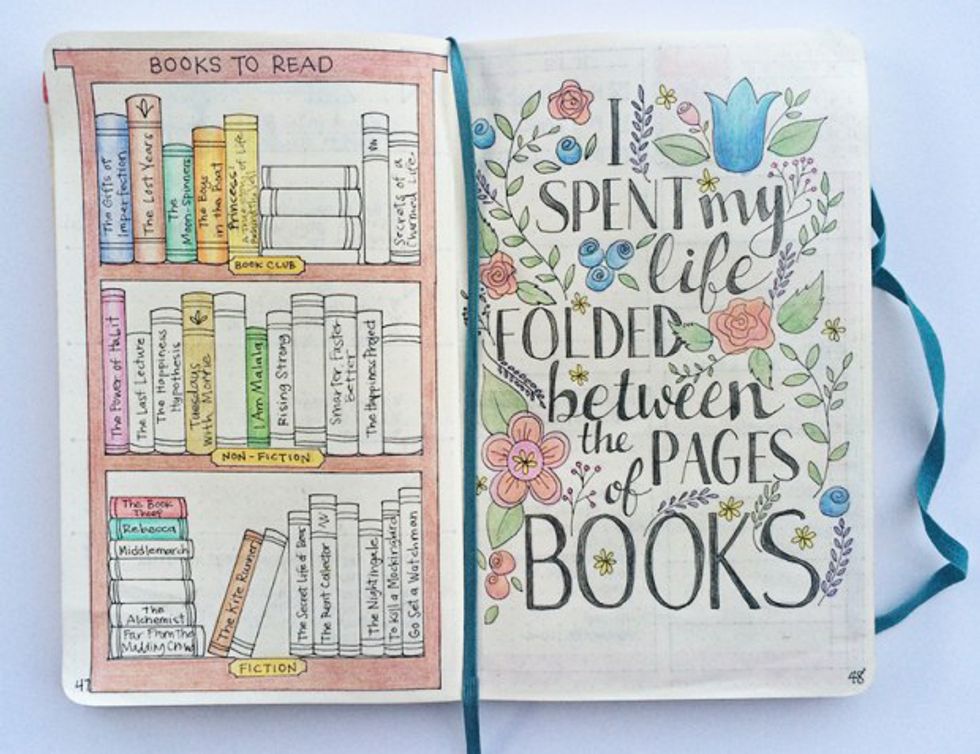 BOOKS TO READ
The Gifts of
Imperfection
The Lost Years
The
Moon-Spinners
The Boys
in the Boat
Princess:
A True Story of Life
Behind the Veil
Secrets of a
Charmed Life
BOOK CLUB
The Power of Habit
The Last Lecture
The Happiness
Hypothesis
Tuesdays
with Morrie
I Am Malala
Rising Strong
Smarter Faster
Better
The Happiness Project
NON-FICTION
The Book
Rebecca
Middlemarch
The
Alchemist
Far From the
Madding Crowd
The Kite Runner
The Secret Life of Bees
The Rent Collector
The Nightingale
To Kill a Mockingbird
Go Set a Watchman
FICTION
47
I
SPENT my
life
FOLDED
between
the PAGES
of
BOOKS
48